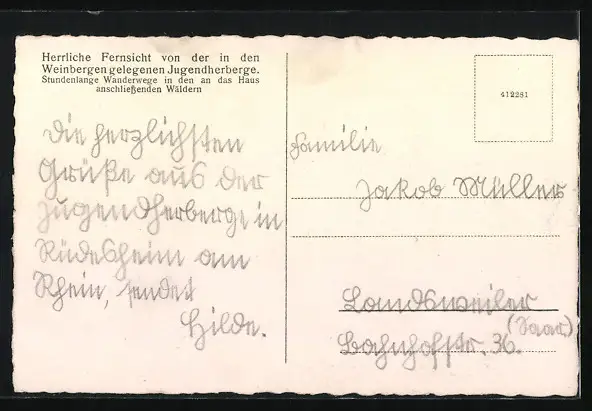 Herrliche Fernsicht von der in den
Weinbergen gelegenen Jugendherberge.
Stundenlange Wanderwege in den an das Haus
anschließenden Wäldern
412281
Die herzlichsten
Grüße aus der
Jugendherberge in
Rüdesheim am
Rhein, sendet
Hilde.
Familie
Jakob Müller
Landsweiler
(Saar)
Bahnhofstr. 36.